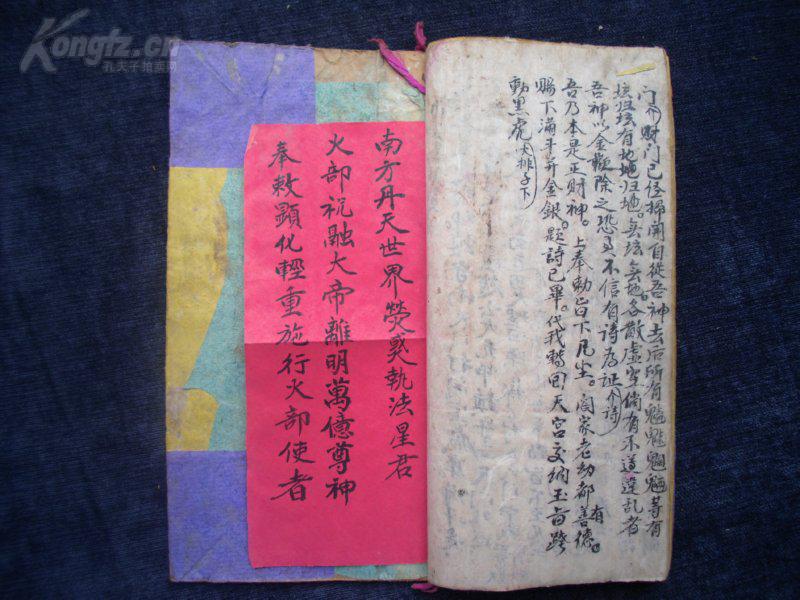 Kongfz.cn
孔夫子旧书网
门(介)财门已经掃開自從吾神去后所有魑魅魍魎等有
坛归坛有地归地。無坛無地各散虚空倘有不遵違乱者
吾神以金鞭除之恐君不信有詩為証(介詩)
吾乃本是正财神。上奉勅旨下凡尘。阎家老幼都有善德。
賜下滿斗升金銀。题詩已畢。代我轉回天宫交納玉旨跨
動黑虎(大排子下)
南方丹天世界熒惑執法星君
火部祝融大帝離明萬億尊神
奉敕顯化輕重施行火部使者